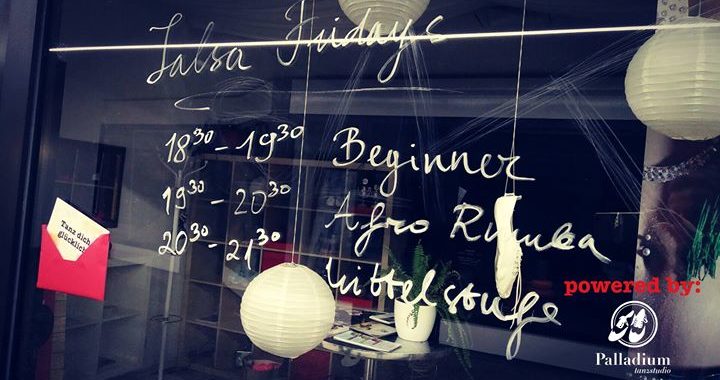 Salsa Fridays
18³⁰ - 19³⁰ Beginner
19³⁰ - 20³⁰ Afro Rumba
20³⁰ - 21³⁰ Mittelstufe
Tanz dich
glücklich
powered by:
Palladium
tanzstudio